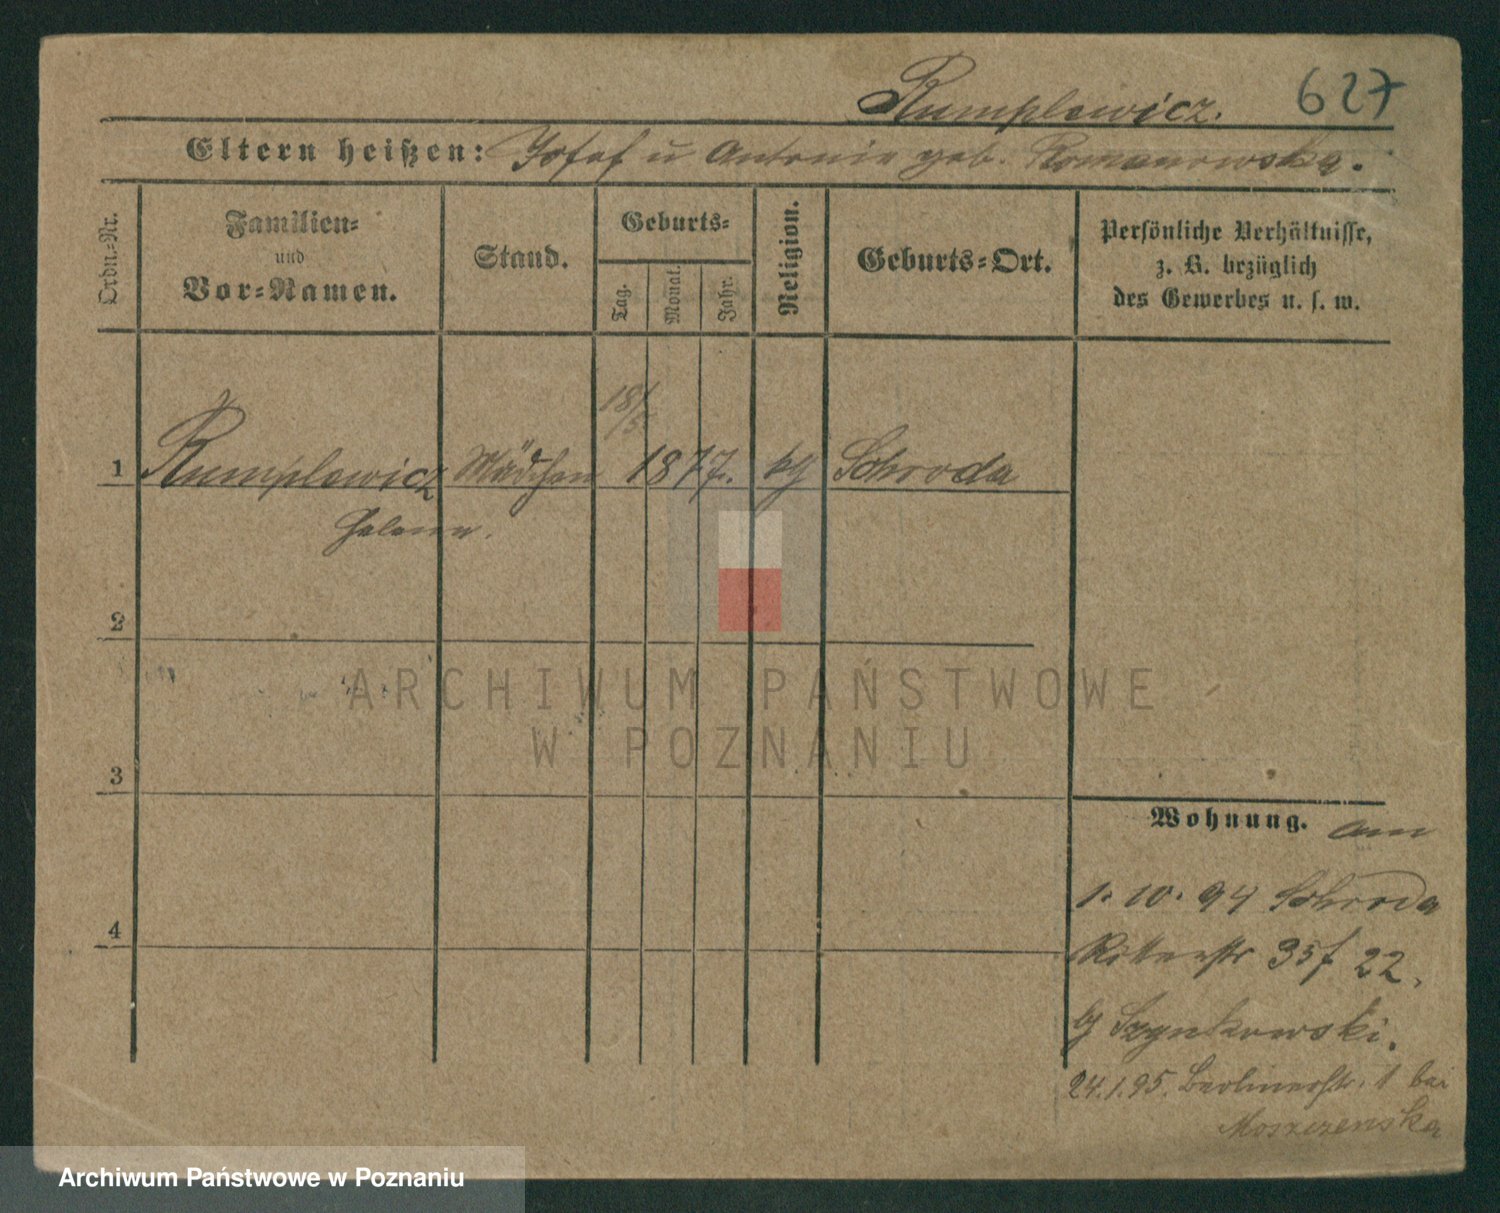 Rumplewicz. 627
Eltern heißen: Josef u Antonie geb. Romanowska.
Ordn.-Nr.
Familien-
und
Vor-Namen.
Stand.
Geburts-
Tag.
Monat.
Jahr.
Religion.
Geburts-Ort.
Persönliche Verhältnisse,
z. B. bezüglich
des Gewerbes u. s. w.
18/5
1 Rumplewicz Mädchen 1877. kg Schroda
Helene.
2
ARCHIWUM PAŃSTWOWE
W POZNANIU
3
Wohnung. am
1. 10. 94 Schroda
4
Ritterstr 35f 22.
Szynkowski.
24.1.95. Berlinerstr. 1 bei
Moszczenska
Archiwum Państwowe w Poznaniu